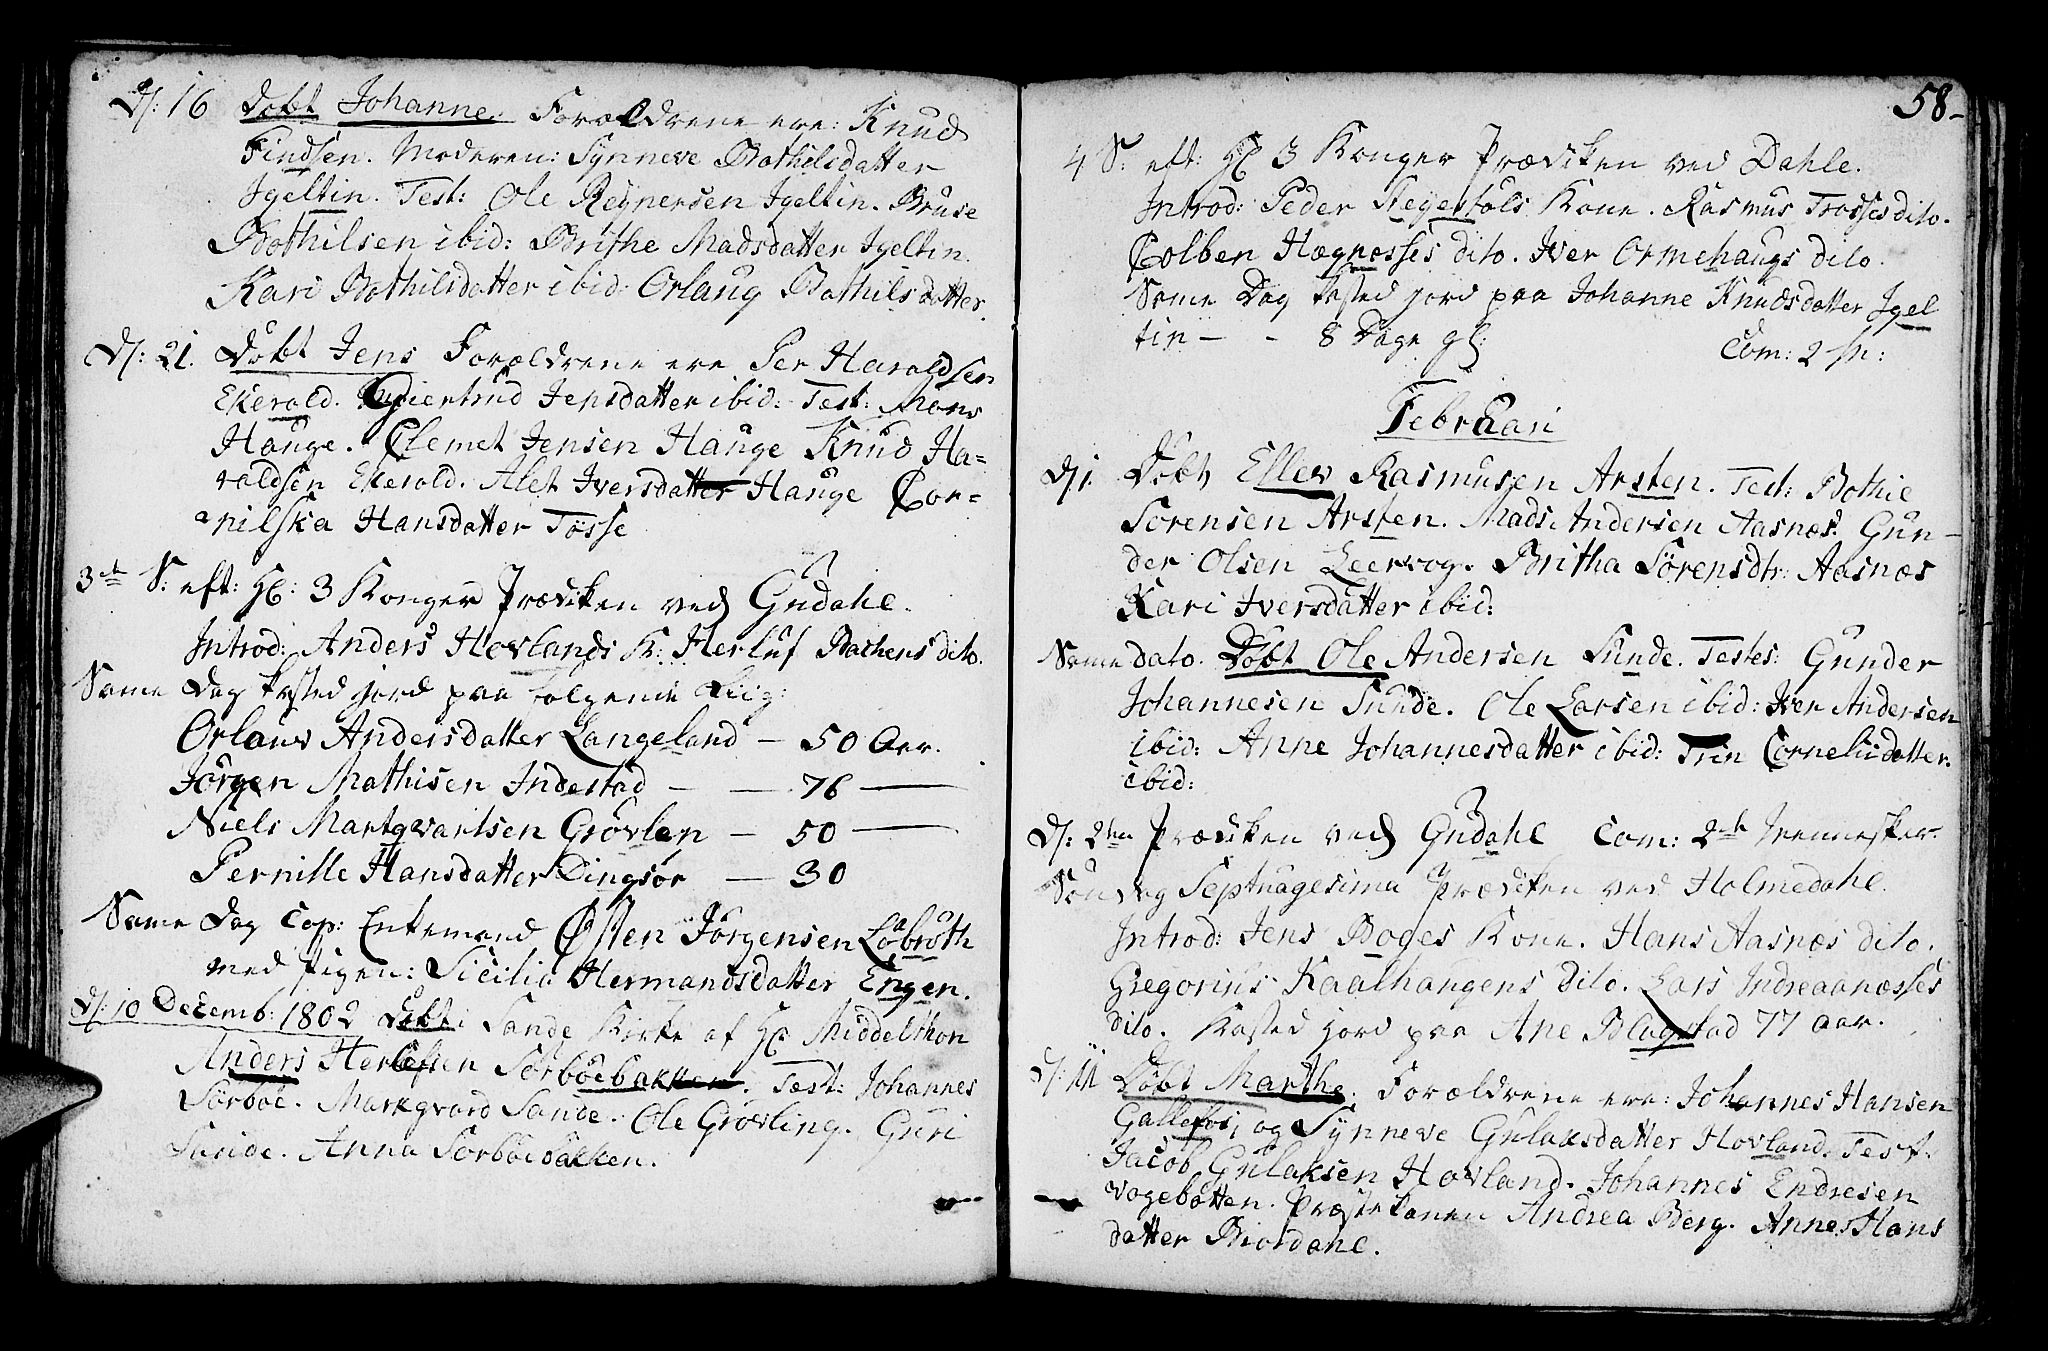 D/: 16 Döbt Johanne. Forældrene ere: Knud
Findsen. Moderen: Synneve Bothilsdatter
Igeltin. Test: Ole Reynersen Igeltin. Bruse
Bothilsen ibid: Brithe Madsdatter Igeltin.
Kari Bothilsdatter ibid: Orlaug Bothilsdatter.
D/: 21. Döbt Jens Forældrene ere Per Haraldsen
Ekerold. Giertrud Jensdatter ibid: Test: Mons
Hauge. Clemet Jensen Hauge Knud Ha=
raldsen Ekerold. Alet Iversdatter Hauge Cor=
nilska Hansdatter Tösse
3de S: eft: H: 3 Konger Prædiken ved Gudahl.
Introd: Anders Hovlands K: Herluf Bachens dito.
Same Dag kasted jord paa følgende Liig:
Orlaug Andersdatter Langeland — 50 Aar.
Jörgen Mathisen Indestad — — 76 —
Niels Martqvartsen Grövlen — 50 —
Pernille Hansdatter Dingsör — 30
Same Dag Cop: Enkemand Østen Jörgensen Laabröth
med Pigen: Sicilia Hermandsdatter Engen.
D/: 10 Decemb: 1802 Döbt i Sande Kirke af H: Middelthon
Anders Herlufsen Sörböebakken. Test: Johannes
Sörböe. Markqvard Sande. Ole Grövling. Guri
Sande. Anna Sörböebakken.
58-
4 S: eft: H: 3 Konger Prædiken ved Dahle.
Introd: Peder Kone. Rasmus Trosses dito.
Colben Hægnæsses dito. Iver Ormehaugs dito.
Same Dag kasted jord paa Johanne Knudsdatter Igel
tin — - 8 Dage gl: Com: 2 sn:
Februari
D/1 Döbt Ellev Rasmusen Arsten. Test: Bothie
Sörensen Arsten. Mads Andersen Aasnæs. Gun-
der Olsen Leervog. Britha Sörensdtr: Aasnæs
Kari Iversdatter ibid:
Same dato. Döbt Ole Andersen Sunde. Testes: Gunder
Johannesen Sunde. Ole Larsen ibid: Iver Andersen
ibid: Anne Johannesdatter ibid: Trin Cornelisdatter.
ibid:
D/: 2den Prædiken ved Gudahl Com: 2de Mennesker.
Söndag Septuagesima Prædiken ved Holmedahl.
Introd: Jens Boges Kone. Hans Aasnæs dito.
Gregorius Kaalhaugens dito. Lars Indreaanæsses
dito. Kasted jord paa Ane Blægstad 77 aar.
D/: 11 Döbt Marthe. Forældrene ere: Johannes Hansen
og Synneve Gulaksdatter Hovland. Test.
Jacob Gulaksen Hovland. Johannes Endresen
Vogebotten. Præstekonen Andrea Berg. Anne Hans
datter Biordahl.